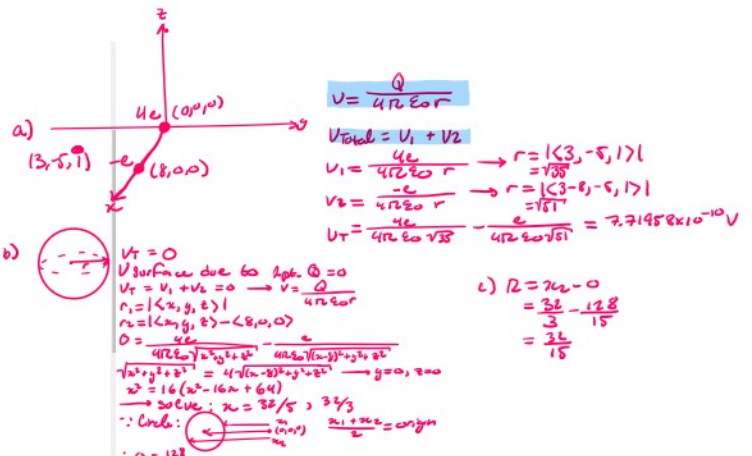 z
4e (0,0,0)
a)
y
(3,-5,1)
-e
(8,0,0)
x
V = Q / 4πε0r
VTotal = V1 + V2
V1 = 4e / 4πε0 r → r = |<3, -5, 1>|
= √35
V2 = -e / 4πε0 r → r = |<3-8, -5, 1>|
= √51
VT = 4e / 4πε0√35 - e / 4πε0√51 = 7.71958x10⁻¹⁰ V
b)
r
VT = 0
V surface due to 2pt. Q = 0
VT = V1 + V2 = 0 → V = Q / 4πε0r
r1 = |<x, y, z>|
r2 = |<x, y, z> - <8,0,0>
0 = 4e / 4πε0√x²+y²+z² - e / 4πε0√(x-8)²+y²+z²
√x²+y²+z² = 4√(x-8)²+y²+z² → y=0, z=0
x² = 16(x² - 16x + 64)
→ solve: x = 32/5, 32/3
∵ Circle:
x1
(0,0,0)
x2
x1 + x2 / 2 = origin
= 128
c) R = x2 - 0
= 32/3 - 128/15
= 32/15